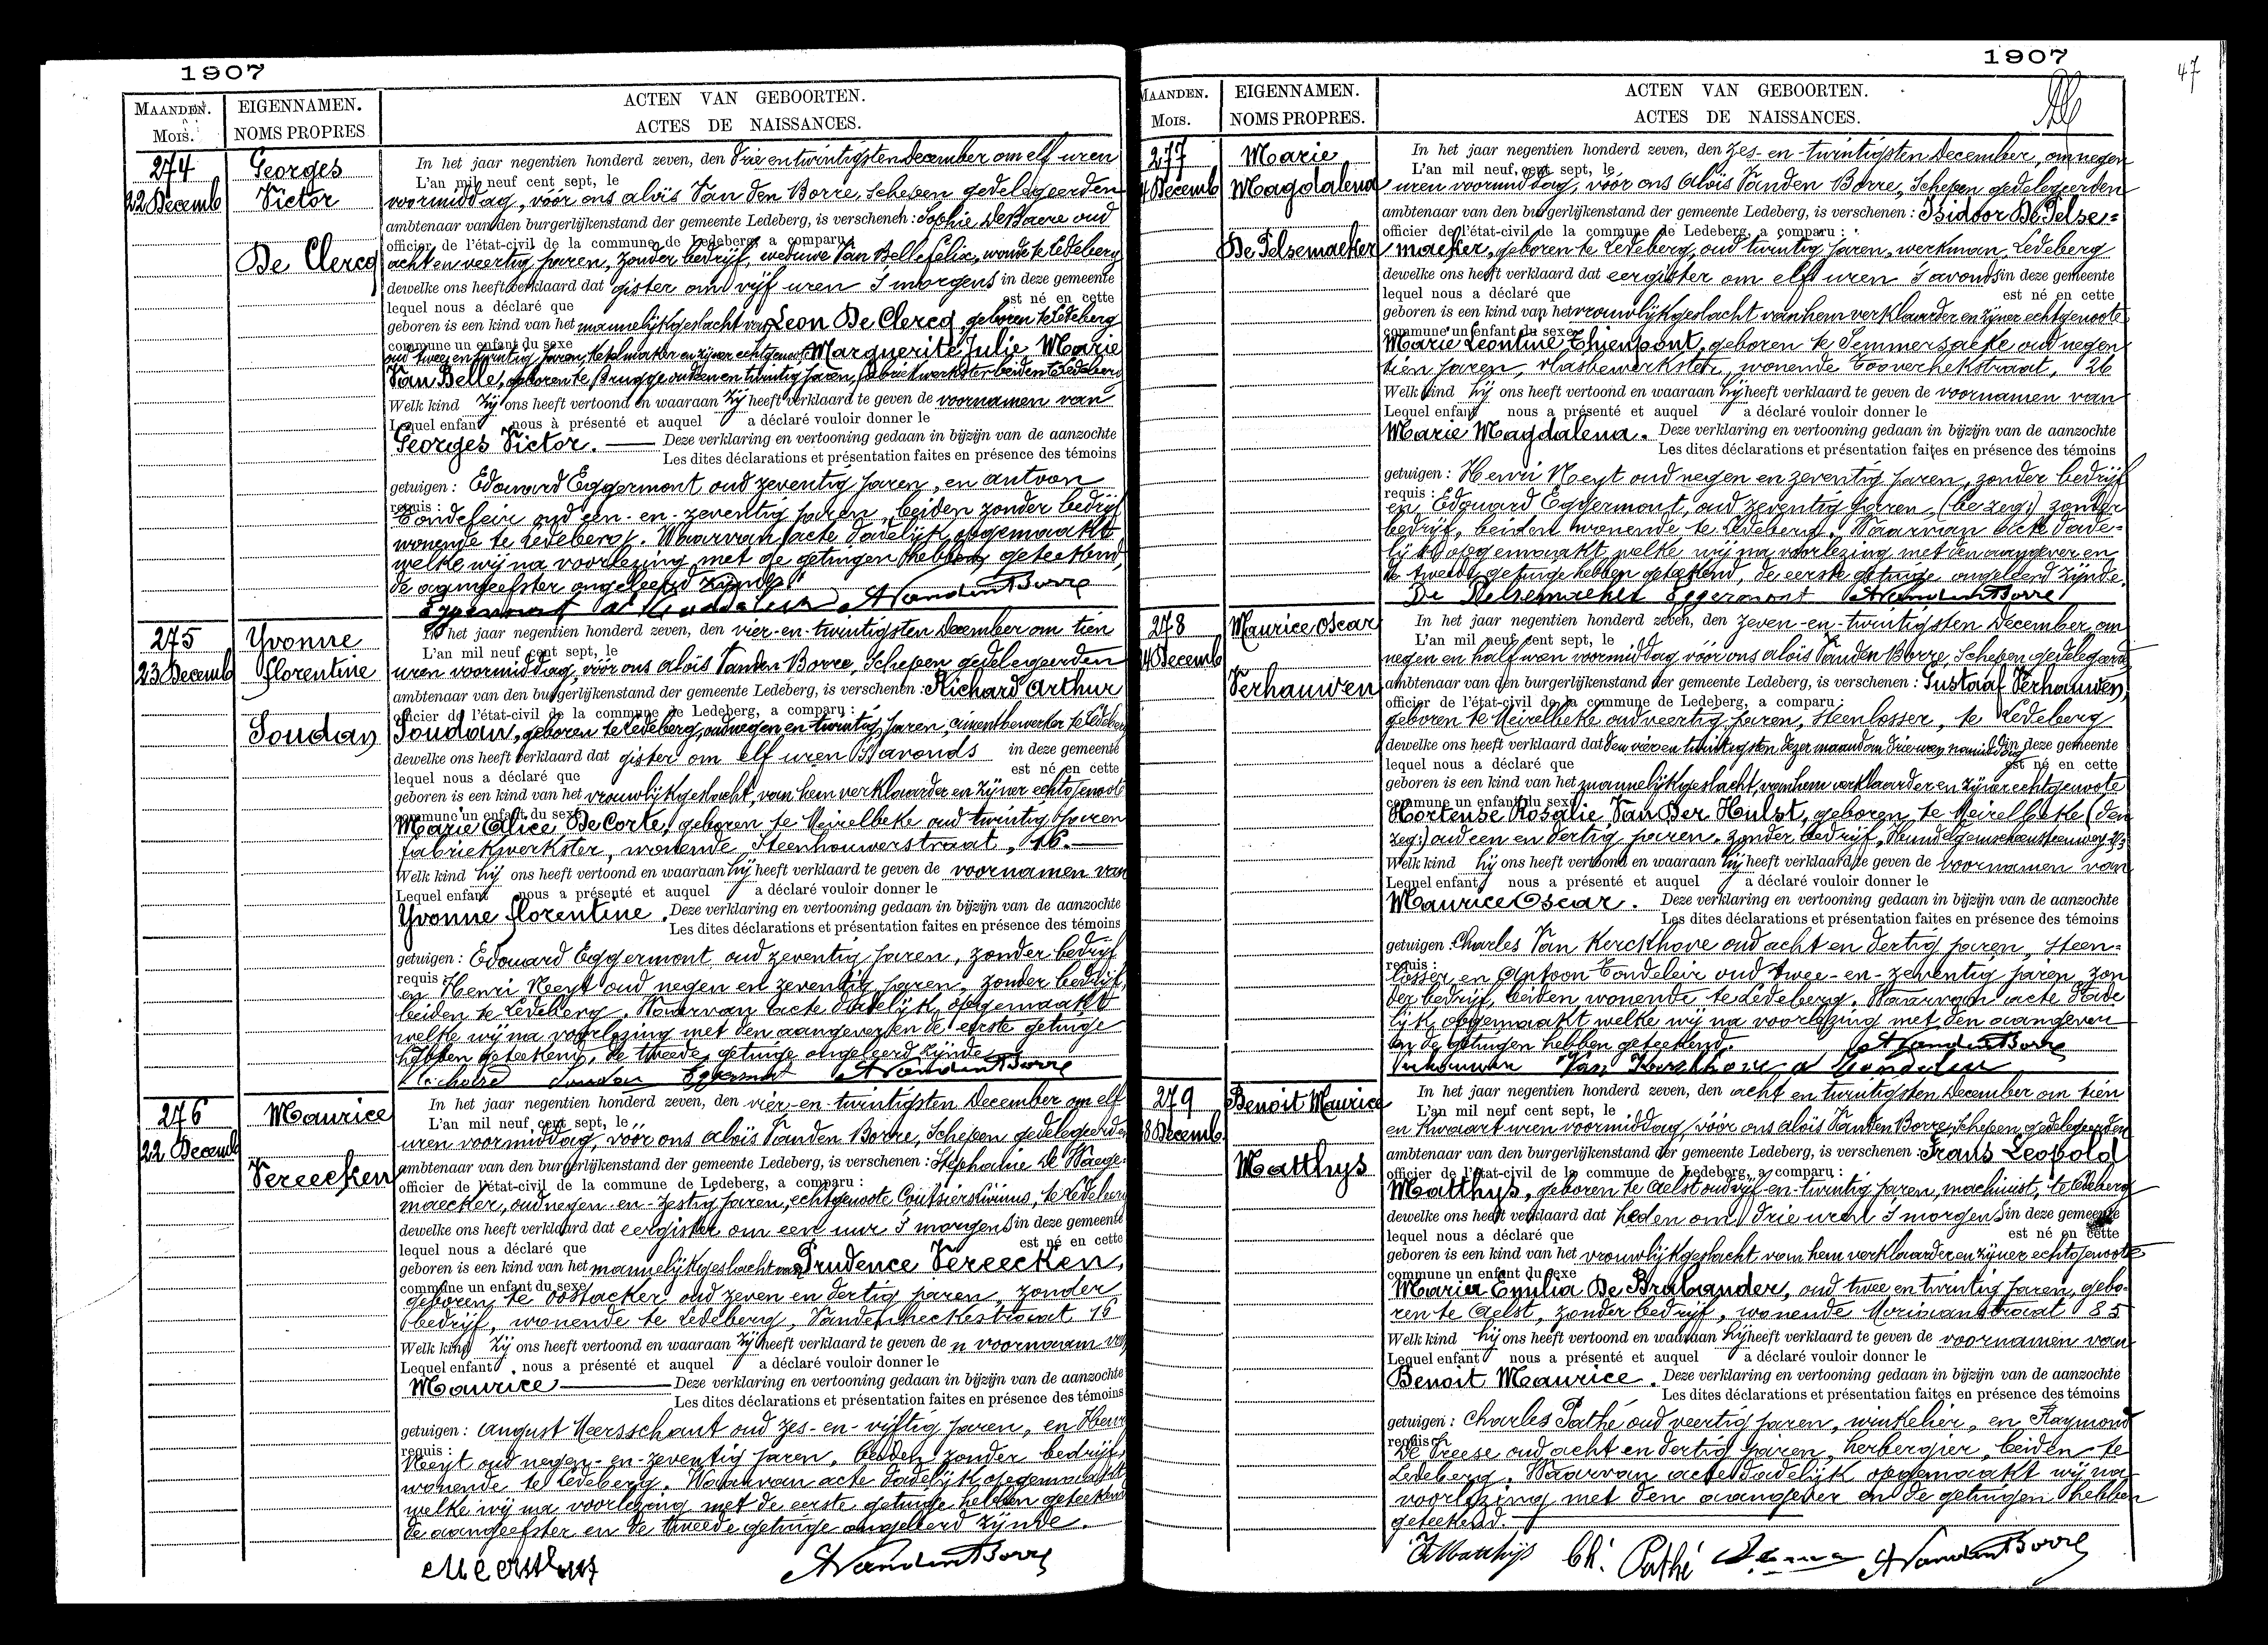 1907
MAANDEN.
MOIS.
EIGENNAMEN.
NOMS PROPRES
ACTEN VAN GEBOORTEN.
ACTES DE NAISSANCES.
274
22 Decemb
Georges
Victor
De Clercq
In het jaar negentien honderd zeven, den drie en twintigsten December om elf uren
L'an mil neuf cent sept, le
voormiddag, vóór ons Aloïs Van den Borre, Schepen gedelegeerden
ambtenaar van den burgerlijkenstand der gemeente Ledeberg, is verschenen : Sophie De Baere oud
officier de l'état-civil de la commune de Ledeberg, a comparu
acht en veertig jaren, zonder bedrijf, weduwe Van Belle Felix, wonende te Ledeberg
dewelke ons heeft verklaard dat gister om vijf uren 's morgens in deze gemeente
lequel nous a déclaré que est né en cette
geboren is een kind van het mannelijk geslacht van Leon De Clercq, geboren te Ledeberg
commune un enfant du sexe
oud twee en twintig jaren, ketelmaker en zijner echtgenoote Marguerite Julie Marie
Van Belle, geboren te Brugge oud een en twintig jaren, fabriekwerkster beiden te Ledeberg
Welk kind zij ons heeft vertoond en waaraan zij heeft verklaard te geven de voornamen van
Lequel enfant nous à présenté et auquel a déclaré vouloir donner le
Georges Victor. — Deze verklaring en vertooning gedaan in bijzijn van de aanzochte
Les dites déclarations et présentation faites en présence des témoins
getuigen : Edouard Eggermont oud zeventig jaren, en Antoon
requis :
Condeleir oud een-en-zeventig jaren, beiden zonder bedrijf
wonende te Ledeberg. Waarvan acte dadelijk opgemaakt
welke wij na voorlezing met de getuigen hebben geteekend,
de aangeefster ongeleerd zijnde.
Eggermont A Condeleir AVandenBorre
275
23 Decemb
Yvonne
Florentine
Soudan
In het jaar negentien honderd zeven, den vier-en-twintigsten December om tien
L'an mil neuf cent sept, le
uren voormiddag, vóór ons Aloïs Vanden Borre, Schepen gedelegeerden
ambtenaar van den burgerlijkenstand der gemeente Ledeberg, is verschenen : Richard Arthur
officier de l'état-civil de la commune de Ledeberg, a comparu :
Soudan, geboren te Ledeberg, oud negen en twintig jaren, cimentbewerker te Ledeberg
dewelke ons heeft verklaard dat gister om elf uren 's avonds in deze gemeente
lequel nous a déclaré que est né en cette
geboren is een kind van het vrouwlijk geslacht, van hem verklaarder en zijner echtgenoote
commune un enfant du sexe
Marie Alice De Corte, geboren te Meirelbeke oud twintig jaren
fabriekwerkster, wonende Steenhouwerstraat, 16. —
Welk kind hij ons heeft vertoond en waaraan hij heeft verklaard te geven de voornamen van
Lequel enfant nous a présenté et auquel a déclaré vouloir donner le
Yvonne Florentine. Deze verklaring en vertooning gedaan in bijzijn van de aanzochte
Les dites déclarations et présentation faites en présence des témoins
getuigen : Edouard Eggermont oud zeventig jaren, zonder bedrijf
requis :
en Henri Neyt oud negen en zeventig jaren, zonder bedrijf,
beiden te Ledeberg. Waarvan acte dadelijk opgemaakt
welke wij na voorlezing met den aangever en de eerste getuige
hebben geteekend, de tweede getuige ongeleerd zijnde.
Richard Soudan Eggermont AVandenBorre
276
22 Decemb
Maurice
Vereecken
In het jaar negentien honderd zeven, den vier-en-twintigsten December om elf
L'an mil neuf cent sept, le
uren voormiddag, vóór ons Aloïs Vanden Borre, Schepen gedelegeerden
ambtenaar van den burgerlijkenstand der gemeente Ledeberg, is verschenen : Stephanie De Waege-
officier de l'état-civil de la commune de Ledeberg, a comparu :
maecker, oud negen-en-zestig jaren, echtgenoote te Ledeberg
dewelke ons heeft verklaard dat eergister om een uur 's morgens in deze gemeente
lequel nous a déclaré que est né en cette
geboren is een kind van het mannelijk geslacht van Prudence Vereecken,
commune un enfant du sexe
geboren te Oostacker oud zeven en dertig jaren, zonder
bedrijf, wonende te Ledeberg, Vandenheckestraat 16
Welk kind zij ons heeft vertoond en waaraan zij heeft verklaard te geven de n voornaam van
Lequel enfant nous a présenté et auquel a déclaré vouloir donner le
Maurice — Deze verklaring en vertooning gedaan in bijzijn van de aanzochte
Les dites déclarations et présentation faites en présence des témoins
getuigen : August Meersschaut oud zes-en-vijftig jaren, en Henri
requis :
Neyt oud negen-en-zeventig jaren, beiden zonder bedrijf,
wonende te Ledeberg. Waarvan acte dadelijk opgemaakt
welke wij na voorlezing met de eerste getuige hebben geteekend
de aangeefster en de tweede getuige ongeleerd zijnde.
AVandenBorre
1907
47
MAANDEN.
MOIS.
EIGENNAMEN.
NOMS PROPRES.
ACTEN VAN GEBOORTEN.
ACTES DE NAISSANCES.
277
4 Decemb
Marie
Magdalena
De Pelsemaeker
In het jaar negentien honderd zeven, den zes-en-twintigsten December, om negen
L'an mil neuf cent sept, le
uren voormiddag, vóór ons Aloïs Vanden Borre, Schepen gedelegeerden
ambtenaar van den burgerlijkenstand der gemeente Ledeberg, is verschenen : Isidoor De Pelse=
officier de l'état-civil de la commune de Ledeberg, a comparu :
maeker, geboren te Ledeberg, oud twintig jaren, werkman, Ledeberg
dewelke ons heeft verklaard dat eergister om elf uren 's avonds in deze gemeente
lequel nous a déclaré que est né en cette
geboren is een kind van het vrouwlijk geslacht van hem verklaarder en zijner echtgenoote
commune un enfant du sexe
Marie Leontine Thienpont, geboren te Semmersaeke oud negen
tien jaren, vlasbewerkster, wonende Tooverhekstraat, 26
Welk kind hij ons heeft vertoond en waaraan hij heeft verklaard te geven de voornamen van
Lequel enfant nous a présenté et auquel a déclaré vouloir donner le
Marie Magdalena. Deze verklaring en vertooning gedaan in bijzijn van de aanzochte
Les dites déclarations et présentation faites en présence des témoins
getuigen : Henri Neyt oud negen en zeventig jaren, zonder bedrijf
requis :
en Edouard Eggermont, oud zeventig jaren, (bezeg:) zonder
bedrijf, beiden wonende te Ledeberg. Waarvan acte dade-
lijk opgemaakt, welke wij na voorlezing met den aangever en
de tweede getuige hebben geteekend, de eerste getuige ongeleerd zijnde.
De Pelsemaeker Eggermont AVandenBorre
278
4 Decemb
Maurice Oscar
Verhauwen
In het jaar negentien honderd zeven, den zeven-en-twintigsten December om
L'an mil neuf cent sept, le
negen en half uren voormiddag vóór ons Aloïs Vanden Borre, Schepen gedelegeerden
ambtenaar van den burgerlijkenstand der gemeente Ledeberg, is verschenen : Gustaaf Verhauwen,
officier de l'état-civil de la commune de Ledeberg, a comparu :
geboren te Meirelbeke oud veertig jaren, steenlosser, te Ledeberg
dewelke ons heeft verklaard dat den vier en twintigsten dezer maand om drie uren namiddag in deze gemeente
lequel nous a déclaré que est né en cette
geboren is een kind van het mannelijk geslacht, van hem verklaarder en zijner echtgenoote
commune un enfant du sexe
Hortense Rosalie Van Der Hulst, geboren te Meirelbeke (den
zeg:) oud een en dertig jaren, zonder bedrijf,
Welk kind hij ons heeft vertoond en waaraan hij heeft verklaard te geven de voornamen van
Lequel enfant nous a présenté et auquel a déclaré vouloir donner le
Maurice Oscar. Deze verklaring en vertooning gedaan in bijzijn van de aanzochte
Les dites déclarations et présentation faites en présence des témoins
getuigen : Charles Van Kerckhove oud acht en dertig jaren, steen=
requis :
losser en Antoon Condeleir oud twee-en-zeventig jaren, zon
der bedrijf, beiden wonende te Ledeberg. Waarvan acte dade
lijk opgemaakt welke wij na voorlezing met den aangever
en de getuigen hebben geteekend. AVandenBorre
Verhauwen Van Kerckhove A Condeleir
279
8 Decemb.
Benoit Maurice
Matthys
In het jaar negentien honderd zeven, den acht en twintigsten December om tien
L'an mil neuf cent sept, le
en kwaart uren voormiddag, vóór ons Aloïs Vanden Borre, Schepen gedelegeerden
ambtenaar van den burgerlijkenstand der gemeente Ledeberg, is verschenen : Frans Leopold
officier de l'état-civil de la commune de Ledeberg, a comparu :
Matthys, geboren te Aelst oud vijf-en-twintig jaren, machinist, te Ledeberg
dewelke ons heeft verklaard dat heden om drie uren 's morgens in deze gemeente
lequel nous a déclaré que est né en cette
geboren is een kind van het vrouwlijk geslacht van hem verklaarder en zijner echtgenoote
commune un enfant du sexe
Maria Emilia De Brabander, oud twee en twintig jaren, gebo-
ren te Aelst, zonder bedrijf, wonende Moriaanstraat 85
Welk kind hij ons heeft vertoond en waaraan hij heeft verklaard te geven de voornamen van
Lequel enfant nous a présenté et auquel a déclaré vouloir donner le
Benoit Maurice. Deze verklaring en vertooning gedaan in bijzijn van de aanzochte
Les dites déclarations et présentation faites en présence des témoins
getuigen : Charles Pathé oud veertig jaren, winkelier, en Raymond
requis :
De Vreese oud acht en dertig jaren, herbergier, beiden te
Ledeberg. Waarvan acte dadelijk opgemaakt wij na
voorlezing met den aangever en de getuigen hebben
geteekend.
F Matthijs Ch. Pathé AVandenBorre